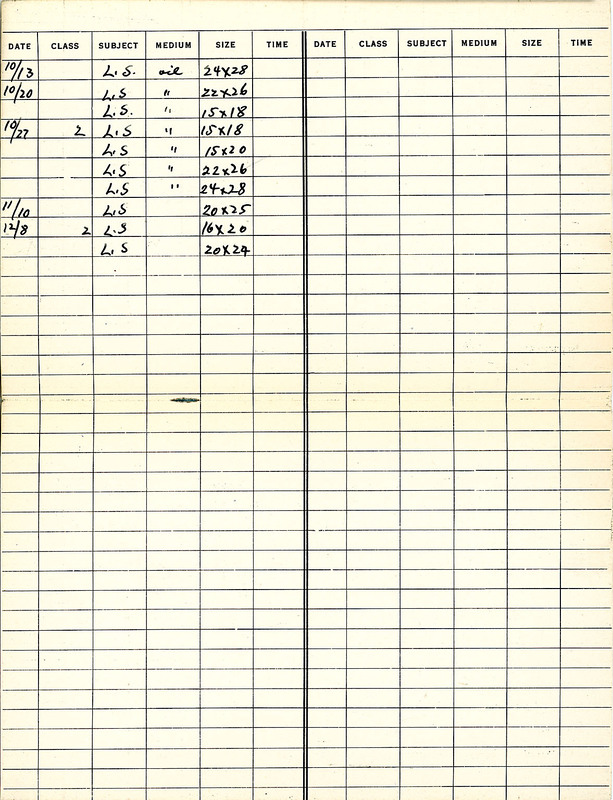 DATE CLASS SUBJECT MEDIUM SIZE TIME DATE CLASS SUBJECT MEDIUM SIZE TIME
10/13 L.S. oil 24x28
10/20 L.S " 22x26
L.S. " 15x18
10/27 2 L.S " 15x18
L.S " 15x20
L.S " 22x26
L.S " 24x28
11/10 L.S 20x25
12/8 2 L.S 16x20
L.S 20x24